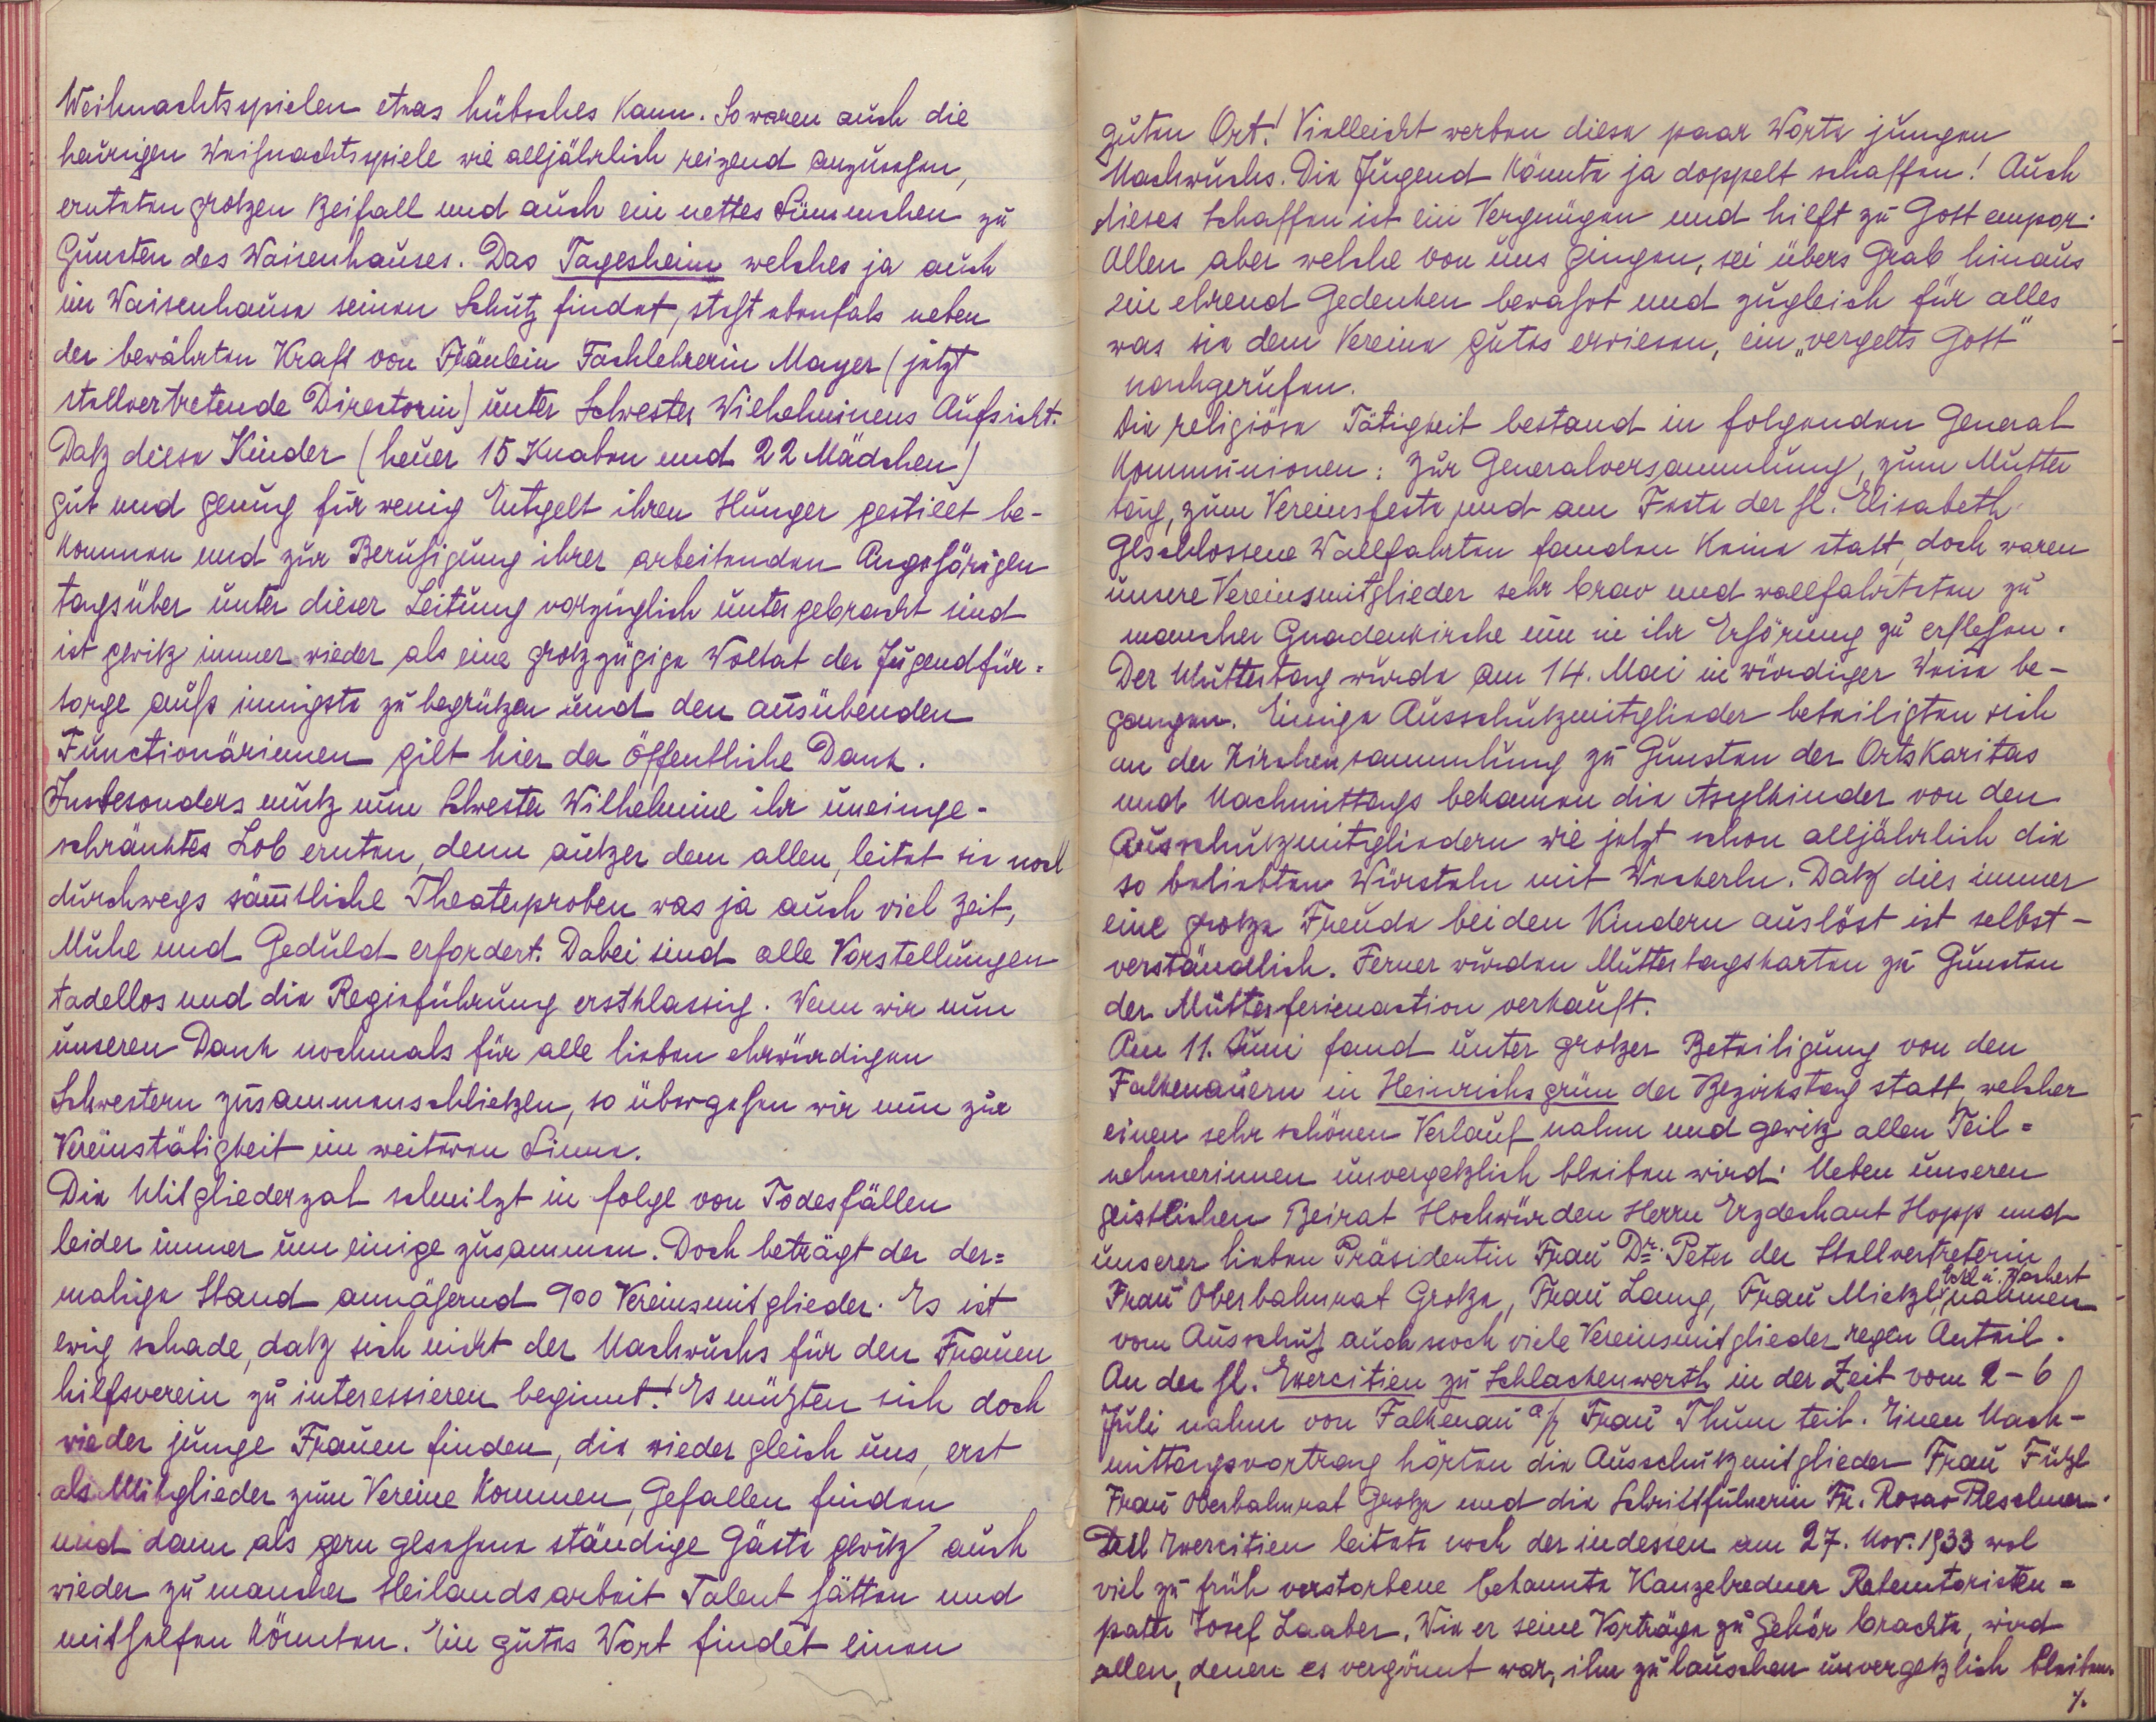 Weihnachtsspielen etwas hübsches kann. So waren auch die
heurigen Weihnachtsspiele wie alljährlich reizend anzusehen,
ernteten großen Beifall und auch ein nettes Sümmchen zu
Gunsten des Waisenhauses. Das Tagesheim welches ja auch
im Waisenhause seinen Schutz findet, steht ebenfals neben
der bewährten Kraft von Fräulein Fachlehrerin Mayer (jetzt
stellvertretende Directorin) unter Schwester Wilhelminens Aufsicht.
Daß diese Kinder (heuer 15 Knaben und 22 Mädchen)
gut und genug für wenig Entgelt ihren Hunger gestillt be-
kommen und zur Beruhigung ihrer arbeitenden Angehörigen
tagsüber unter dieser Leitung vorzüglich untergebracht sind
ist gewiß immer wieder als eine großzügige Woltat der Jugendfür=
sorge aufs innigste zu begrüßen und den ausübenden
Functionärinnen gilt hier der öffentliche Dank.
Insbesonders muß nun Schwester Wilhelmine ihr uneinge-
schränktes Lob ernten, denn außer dem allen, leitet sie noch
durchwegs sämtliche Theaterproben was ja auch viel Zeit,
Mühe und Geduld erfordert. Dabei sind alle Vorstellungen
tadellos und die Regieführung erstklassig. Wenn wir nun
unseren Dank nochmals für alle lieben ehrwürdigen
Schwestern zusammenschließen, so übergehen wir nun zur
Vereinstätigkeit im weiteren Sinne.
Die Mitgliederzal schmilzt in folge von Todesfällen
leider immer um einige zusammen. Doch beträgt der der=
malige Stand annähernd 900 Vereinsmitglieder. Es ist
ewig schade, daß sich nicht der Nachwuchs für den Frauen
hilfsverein zu interessieren beginnt! Es müßten sich doch
wieder junge Frauen finden, die wieder gleich uns, erst
als Mitglieder zum Vereine kommen, Gefallen finden
und dann als gern gesehene ständige Gäste gewiß auch
wieder zu mancher Heilandsarbeit Talent hätten und
mithelfen könnten. Ein gutes Wort findet einen
guten Ort! Vielleicht werben diese paar Worte jungen
Nachwuchs. Die Jugend könnte ja doppelt schaffen! Auch
dieses Schaffen ist ein Vergnügen und hilft zu Gott empor.
Allen aber welche von uns gingen, sei übers Grab hinaus
ein ehrend Gedenken bewahrt und zugleich für alles
was sie dem Vereine gutes erwiesen, ein „vergelts Gott"
nachgerufen.
Die religiöse Tätigkeit bestand in folgenden General
kommunionen: Zur Generalversammlung, zum Mutter
tag, zum Vereinsfeste und am Feste der hl. Elisabeth
Geschlossene Wallfahrten fanden keine statt, doch waren
unsere Vereinsmitglieder sehr brav und wallfahrteten zu
mancher Gnadenkirche um in ihr Erhörung zu erflehen.
Der Muttertag wurde am 14. Mai in würdiger Weise be-
gangen. Einige Ausschußmitglieder beteiligten sich
an der Kirchensammlung zu Gunsten der Ortskaritas
und Nachmittags bekamen die Asylkinder von den
Ausschußmitgliedern wie jetzt schon alljährlich die
so beliebten Würsteln mit Weckerln. Daß dies immer
eine große Freude bei den Kindern auslöst ist selbst-
verständlich. Ferner wurden Muttertagskarten zu Gunsten
der Mütterferienaction verkauft.
Am 11. Juni fand unter großer Beteiligung von den
Falkenauern in Heinrichsgrün der Bezirkstag statt, welcher
einen sehr schönen Verlauf nahm und gewiß allen Teil=
nehmerinnen unvergeßlich bleiben wird. Neben unseren
geistlichen Beirat Hochwürden Herrn Erzdechant Hopp und
unserer lieben Präsidentin Frau Dr. Peter der Stellvertreterin
Frau Oberbahnrat Große, Frau Lang, Frau Mießl, nahmen
vom Ausschuß auch noch viele Vereinsmitglieder regen Anteil.
An den hl. Exercitien zu Schlackenwerth in der Zeit vom 2-6
Juli nahm von Falkenau a/E Frau Thum teil. Einen Nach-
mittagsvortrag hörten die Ausschußmitglieder Frau Füßl
Frau Oberbahnrat Große und die Schriftführerin Fr. Rosa Peschner.
Die Exercitien leitete noch der indessen am 27. Nov. 1933 wol
viel zu früh verstorbene bekannte Kanzelredner Redemtoristen=
pater Josef Laaber. Wie er seine Vorträge zu Gehör brachte, wird
allen, denen es vergönnt war, ihm zu lauschen unvergeßlich bleiben.
%.